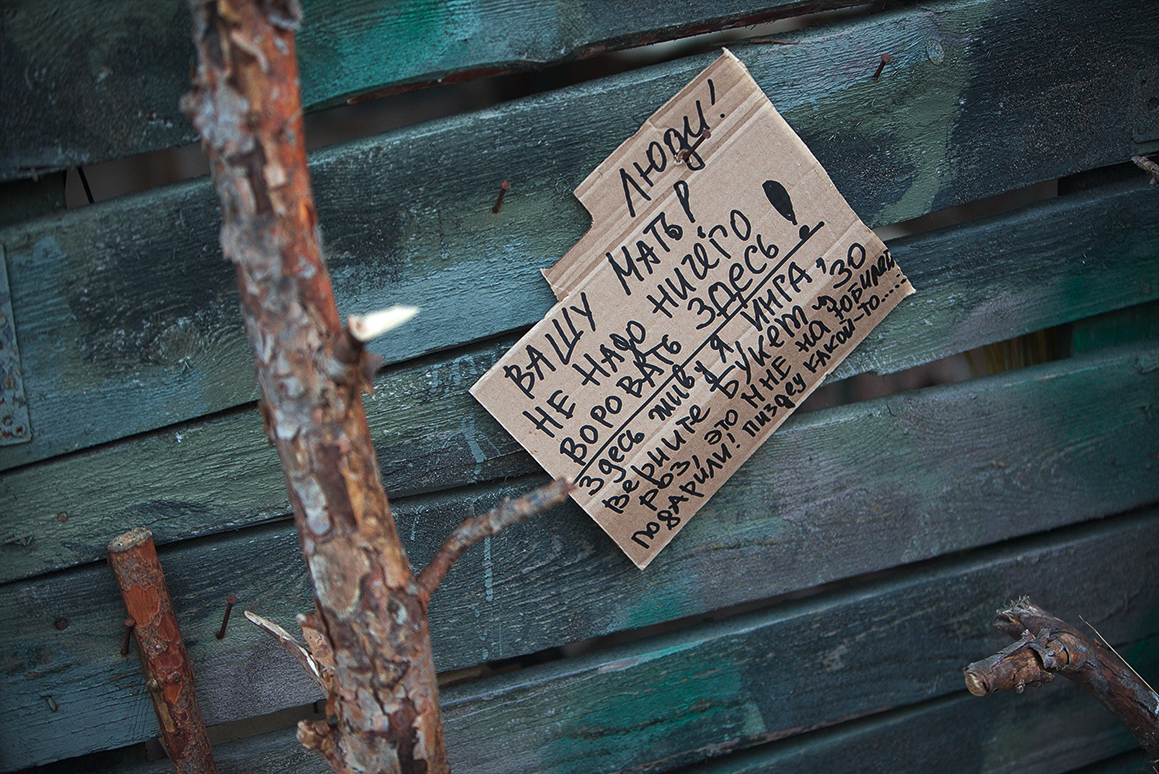 ЛЮДИ!
ВАШУ МАТЬ?
НЕ НАДО НИЧЕГО
ВОРОВАТЬ ЗДЕСЬ!
Здесь живу я ИНГА,
верните букет из 30
роз, это мне на юбилей
подарили! пиздец какой-то.....